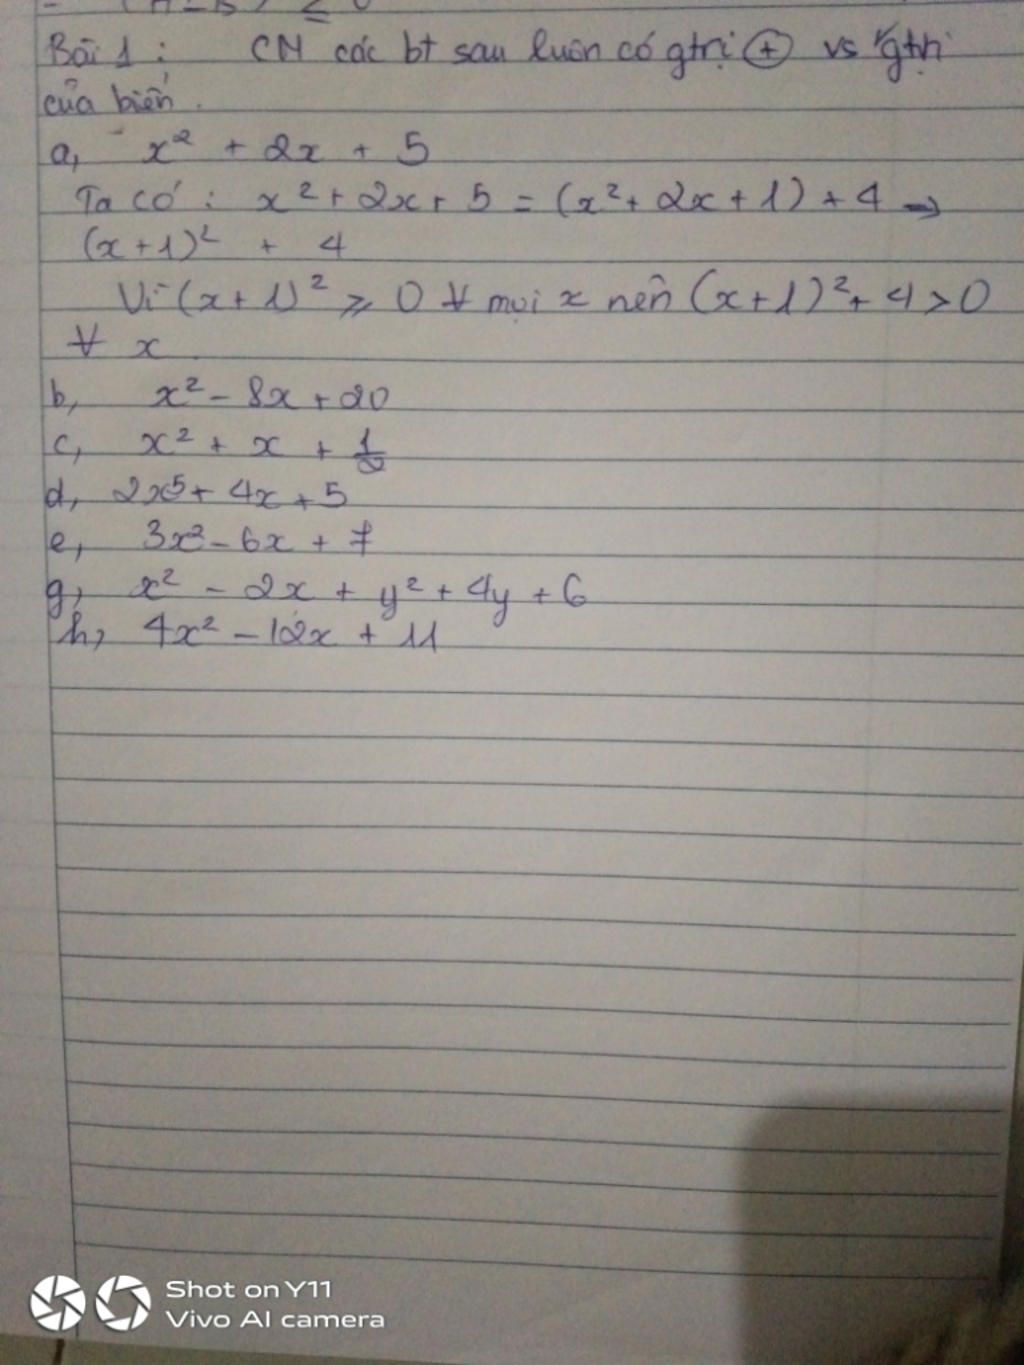 Bài 1 : CM các bt sau luôn có gtrị ⊕ vs ∀gtrị
của biến.
a, x² + 2x + 5
Ta có : x² + 2x + 5 = (x² + 2x + 1) + 4 →
(x+1)² + 4
Vì (x+1)² ⩾ 0 ∀ mọi x nên (x+1)² + 4 > 0
∀ x
b, x² - 8x + 20
c, x² + x + 1/2
d, 2x⁵ + 4x + 5
e, 3x² - 6x + 7
g, x² - 2x + y² + 4y + 6
h, 4x² - 12x + 11
Shot on Y11
Vivo AI camera